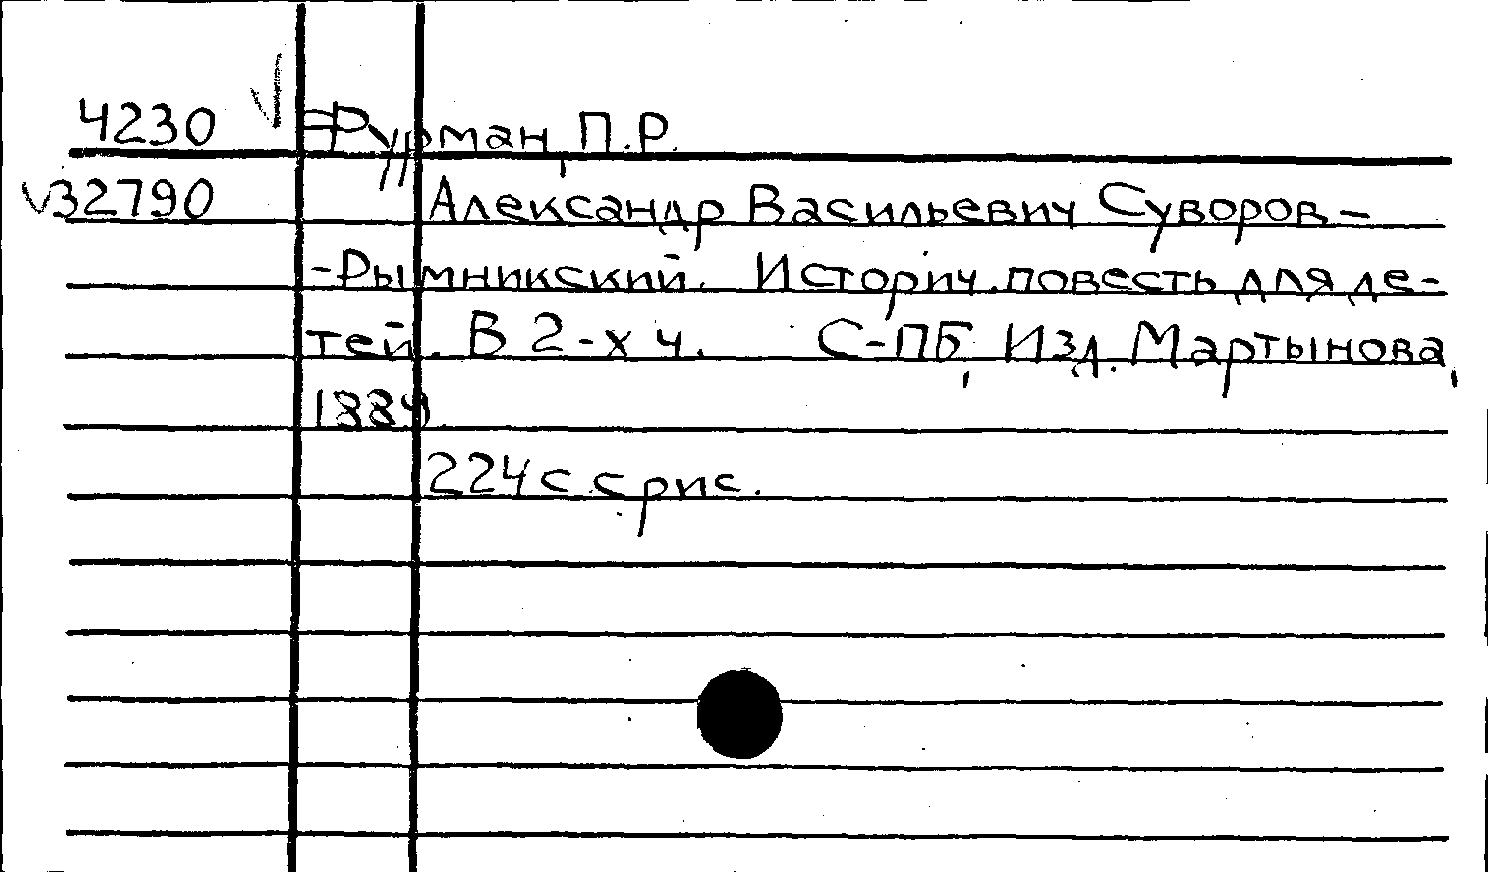 4230 Фурман, П.Р.
32790 Александр Васильевич Суворов-
-Рымникский. Историч. повесть для де-
тей. В 2-х ч. С-ПБ, Изд. Мартынова,
1884.
224 с. с рис.